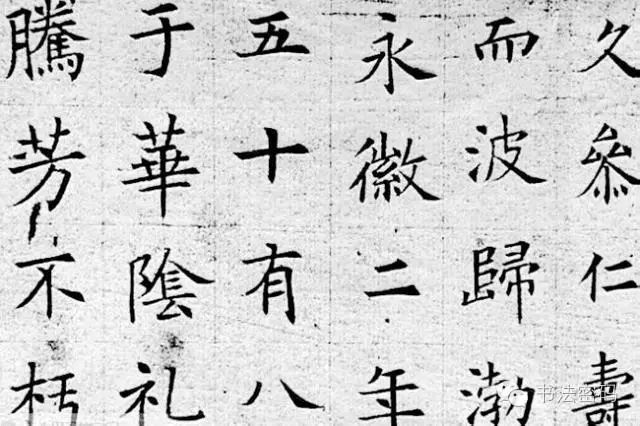 久叅仁壽
而波歸渤
永徽二年
五十有八
于華陰礼
騰芳不朽
书法密码